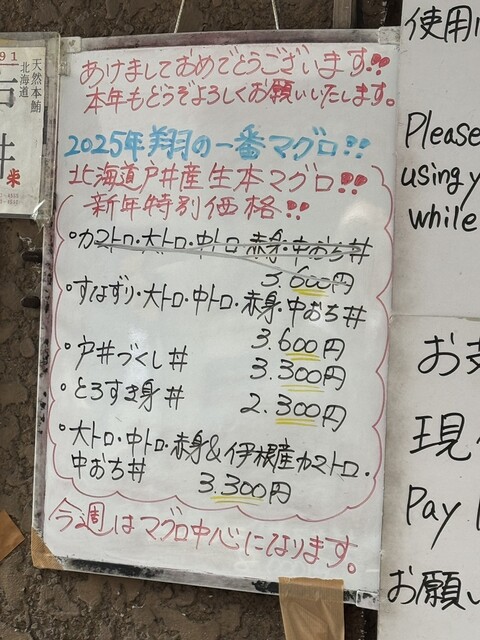 あけましておめでとうございます!!
本年もどうぞよろしくお願いいたします。
2025年翔の一番マグロ!!
北海道戸井産生本マグロ!!
新年特別価格!!
・カストロ・大トロ・中トロ・赤身・中おち丼
3.600円
・すなずり・大トロ・中トロ・赤身・中おち丼
3.600円
・戸井づくし丼 3.300円
・とろすき身丼 2.300円
・大トロ・中トロ・赤身&伊根産カストロ・
中おち丼 3.300円
今週はマグロ中心になります。
91
天然本鮪
北海道
井
使用
Please
using y
while
お支
現
Pay
お願い